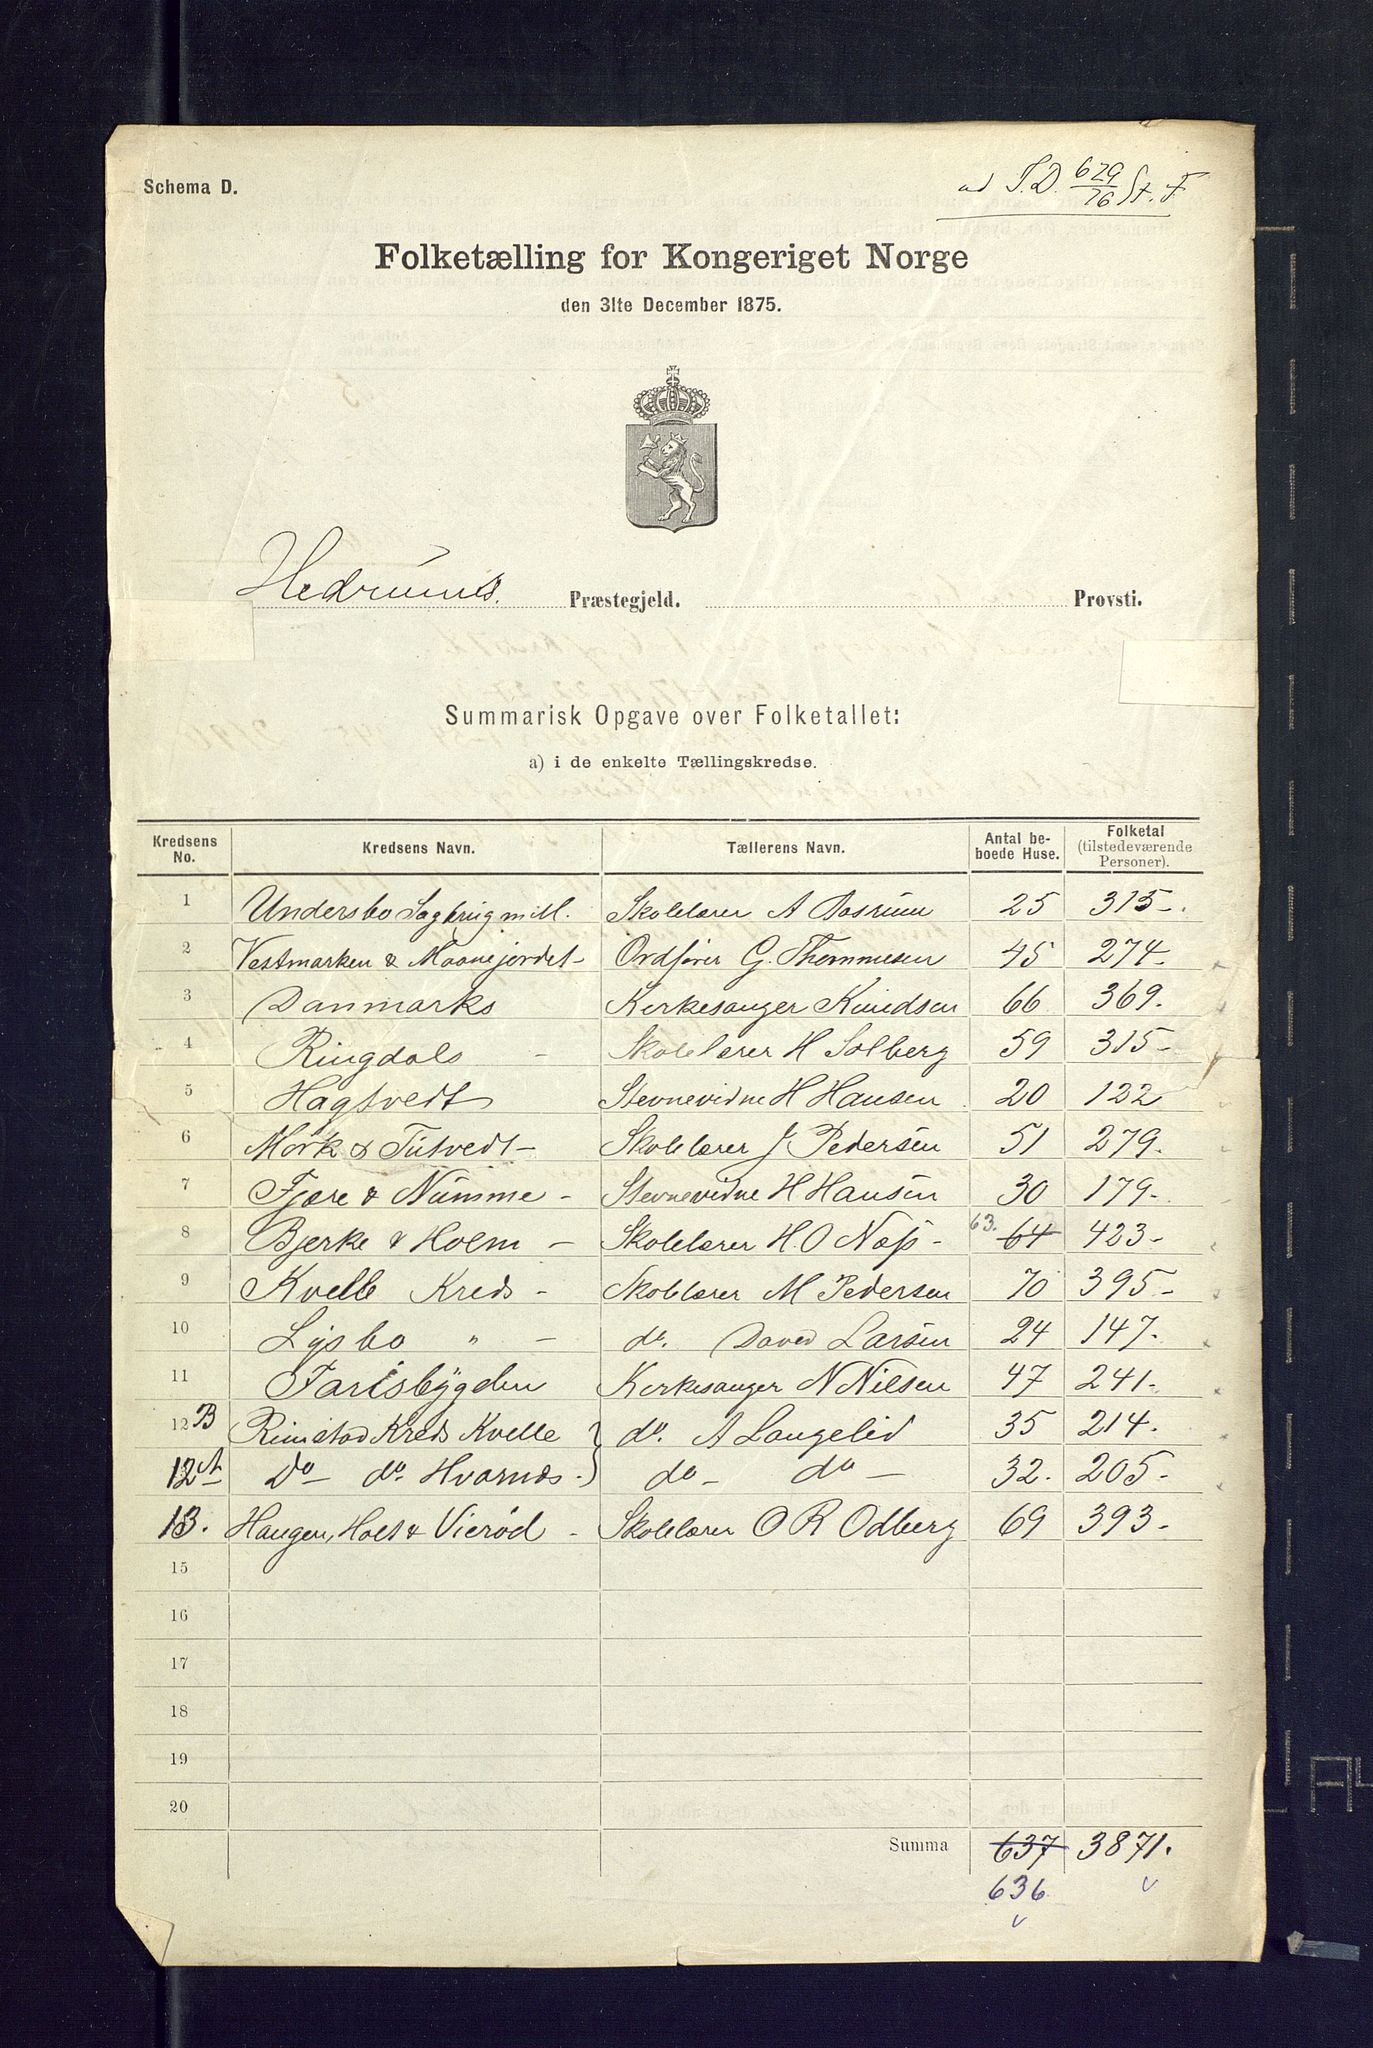 Schema D.
ad S.D. 629/76 St. F
Folketælling for Kongeriget Norge
den 31te December 1875.
Hedrums. Præstegjeld. Provsti.
Summarisk Opgave over Folketallet:
a) i de enkelte Tællingskredse.
Kredsens No. Kredsens Navn. Tællerens Navn. Antal beboede Huse. Folketal (tilstedeværende Personer).
1 Undersbo Sagbrug m.M. Skolelærer A 25 315-.
2 Vestmarken & Maanejordet- Ordfører G. Thommesen 45 274-
3 Danmarks Kirkesanger Knudsen 66 369.
4 Ringdals - Skolelærer H Solberg 59 315-
5 Hagtvedt Stevnevidne H Hansen 20 122
6 Mørk & Tutvedt- Skolelærer J Pedersen 51 279.
7 Fjære & Numme - Stevnevidne H Hansen 30 179-
8 Bjerke & Holm - Skolelærer H.O Næss - 63. 64 423-
9 Kvelle Kreds - Skolelærer M Pedersen 70 395-
10 Lysbo " - do. David Larsen 24 147.
11 Farisbygden Kirkesanger N Nilsen 47 241-
12 B Rimstad Kreds Kvelle } do. A Langelid 35 214.
12 A Do- do. Hvarnes- do- do- 32. 205-
13. Haugen, Holt & Vierød - Skolelærer O R Odberg 69 393-
15
16
17
18
19
20
Summa 637 3871.
636